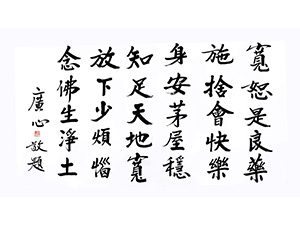 寬恕是良藥
施捨會快樂
身安茅屋穩
知足天地寬
放下少煩惱
念佛生淨土
廣心敬題